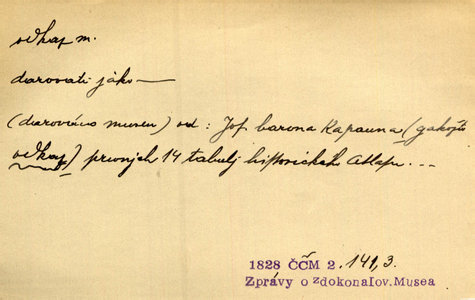 odkaz m.
darovati jako —
(darováno museu) od: Jos. barona Kapauna (gakožto
odkaz) prwnjch 14 tabulj historického Atlasu. ...
1828 ČČM 2. 141,3.
Zprávy o zdokonalov. Musea